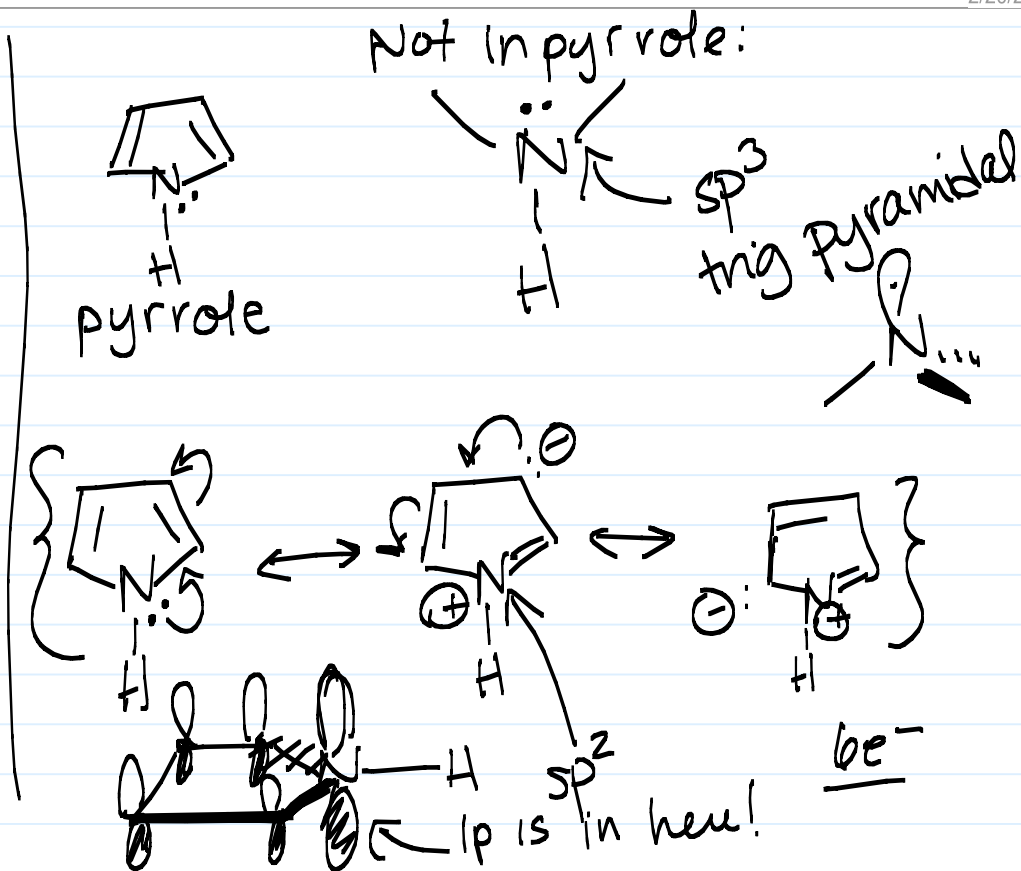 Not in pyrrole:
N
H
pyrrole
N
H
sp³
trig pyramidal
N
N
H
⊕ N
H
⊖
⊖
N ⊕
H
N
H
sp²
6e⁻
lp is in here!